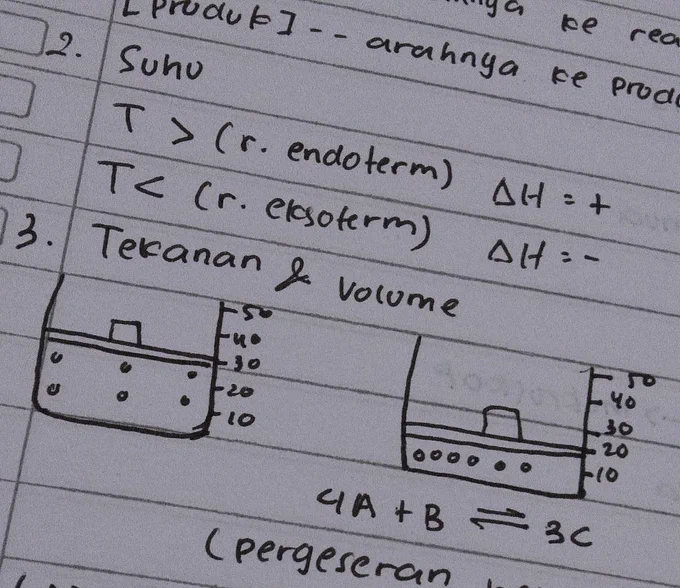 ke rea
[produk] -- arahnya ke produ
2. Suhu
T > (r. endoterm) ΔH = +
T < (r. eksoterm) ΔH = -
3. Tekanan & Volume
50
40
30
20
10
50
40
30
20
10
4A + B ⇌ 3C
(pergeseran